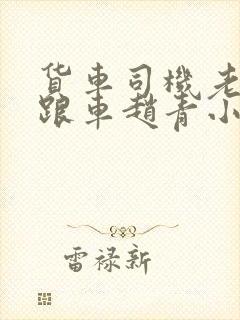 货車司機老
跟車趙青小
雷禄新